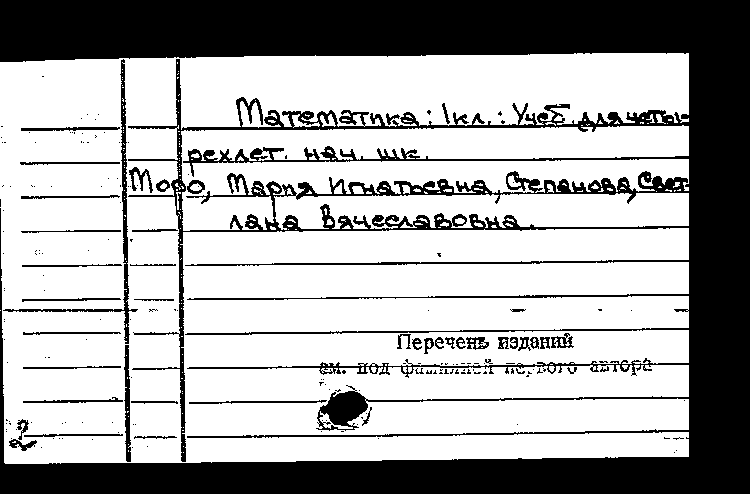 Математика: 1кл.: Учеб. для четы-
рехлет. нач. шк.
Моро, Мария Игнатьевна, Степанова, Свет-
лана Вячеславовна.
Перечень изданий
см. под фамилией первого автора
2